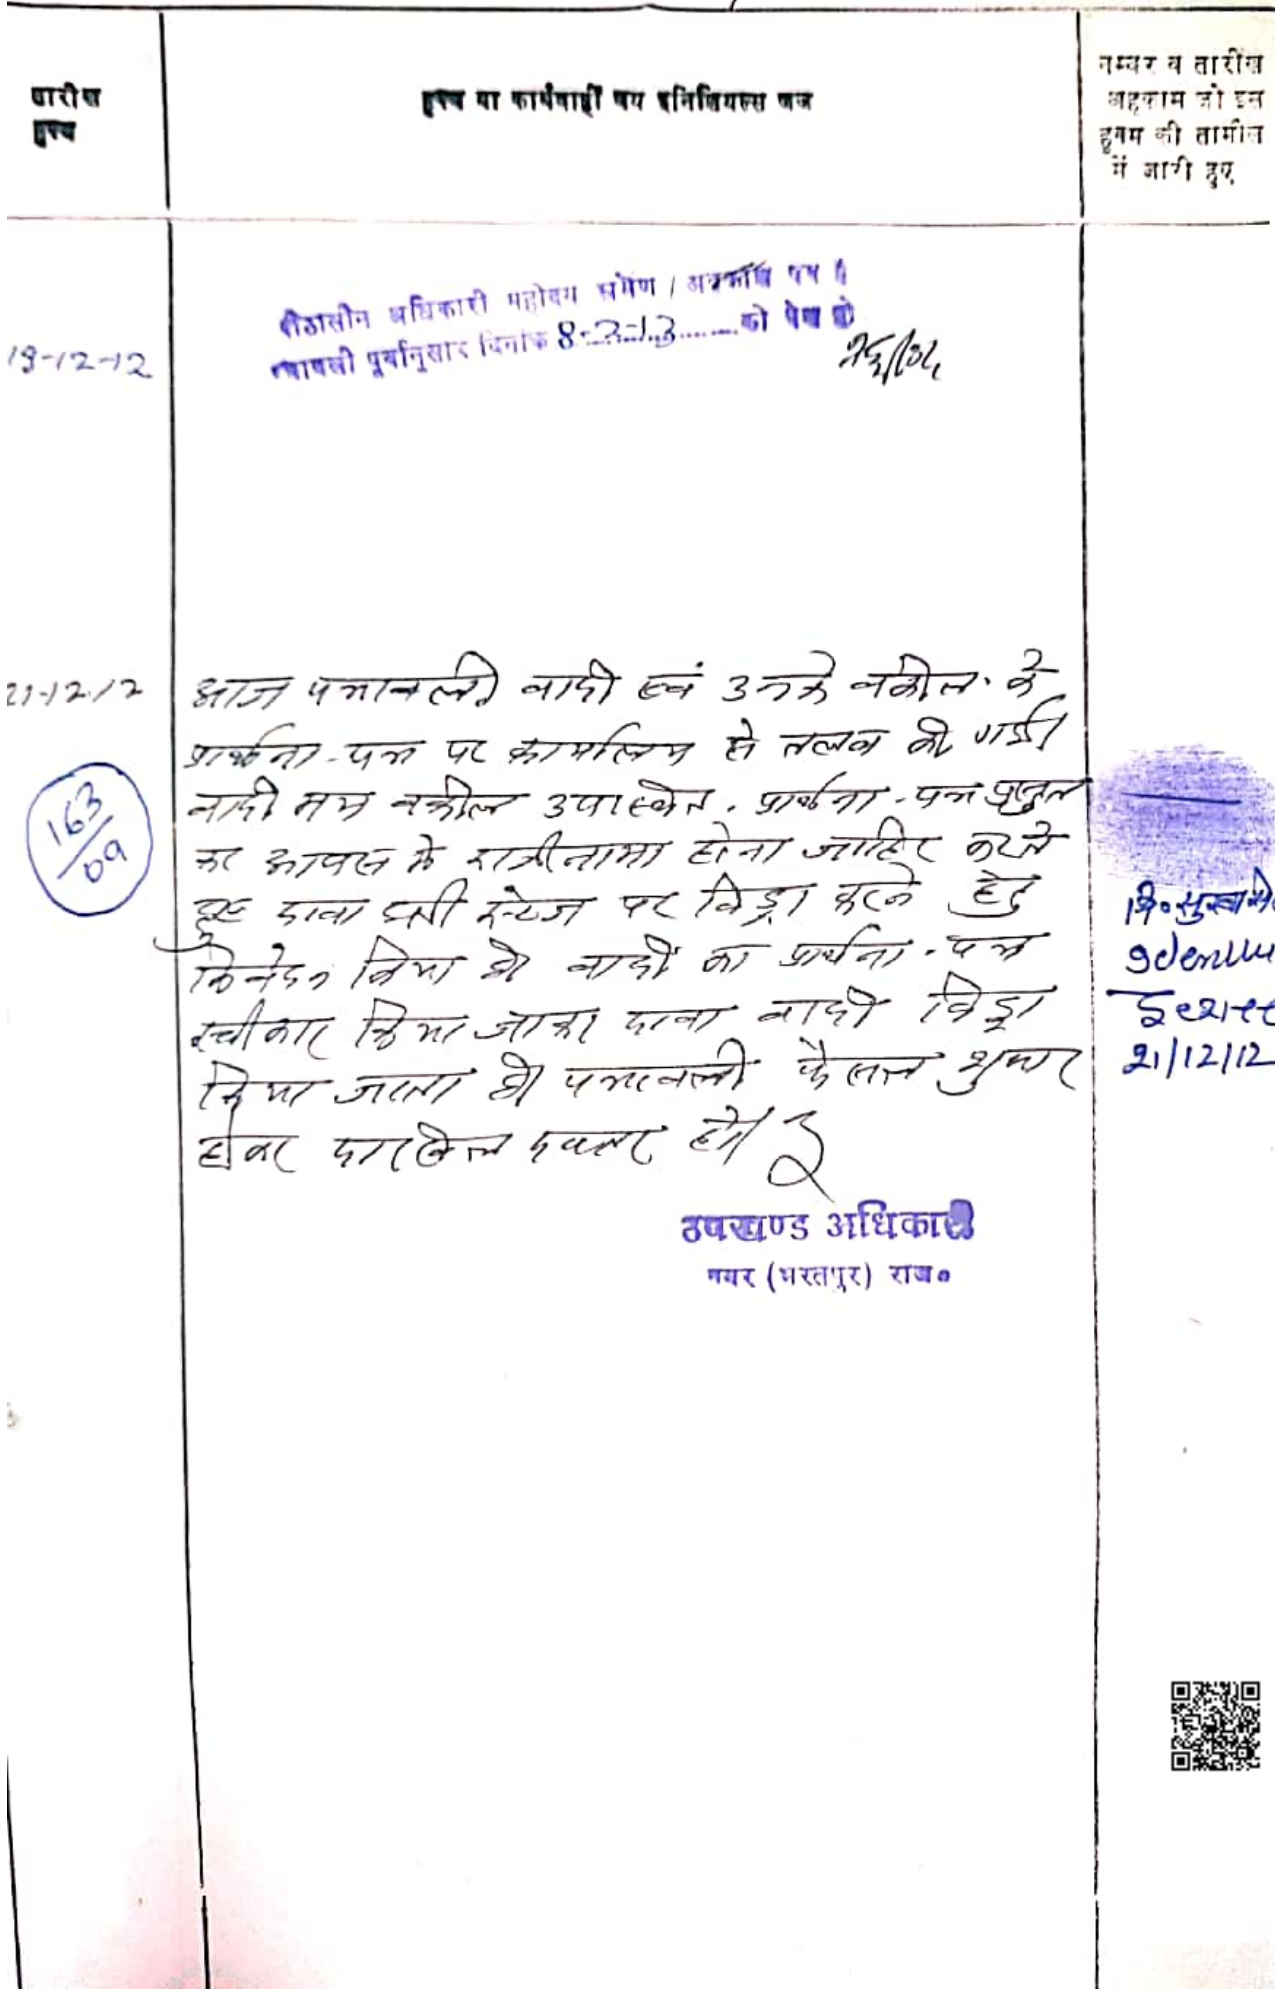 तारीख
हुक्म
हुक्म या कार्यवाही मय इनिशियल्स जज
नम्बर व तारीख
अहकाम जो इस
हुक्म की तामील
में जारी हुए
पीठासीन अधिकारी महोदय भ्रमण / अवकाश पर है
पत्रावली पूर्वानुसार दिनांक 8-2-13 को पेश हो
19-12-12
21-12-12
आज पत्रावली वादी एवं उनके वकील के
प्रार्थना-पत्र पर कार्यालय से तलब की गई।
वादी मय वकील उपस्थित. प्रार्थना-पत्र प्रस्तुत
कर आपस में राजीनामा होना जाहिर करते
हुए दावा इसी स्टेज पर विड्रा करने हेतु
निवेदन किया है। वादी का प्रार्थना-पत्र
स्वीकार किया जाकर दावा वादी विड्रा
किया जाता है। पत्रावली फैसल शुमार
होकर दाखिल दफ्तर हो।
163
09
21/12/12
उपखण्ड अधिकारी
नगर (भरतपुर) राज०